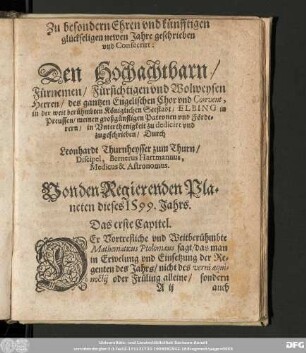 Zu besondern Ehren vnd künfftigen
glückseligen newen Jahre geschrieben
vnd Consecrirt:
Den Hochachtbarn/
Fürnemen/ Fürsichtigen vnd Wolweysen
Herren/ des gantzen Engelischen Chor vnd Convent,
in der weit berühmbten Königlichen Seestadt, ELBING in
Preussen/ meinen großgünstigen Patronen vnd Förde-
rern/ in Unterthenigkeit zu dedicirt vnd
zugeschrieben/ Durch
Leonhardt Thurnheysser zum Thurn/
Discipel, Bemerus Hartmannus,
Medicus & Astronomus.
Von den Regierenden Pla-
neten dieses 1599. Jahrs.
Das erste Capitel.
DEr Vortrefliche vnd Weitberühmbte
Mathematicus Ptolomæus sagt/ das man
in Erwelung vnd Einsetzung der Re-
genten des Jahrs/ nicht des verni æqui-
noctij oder Früling alleine/ sondern
A ij
auch